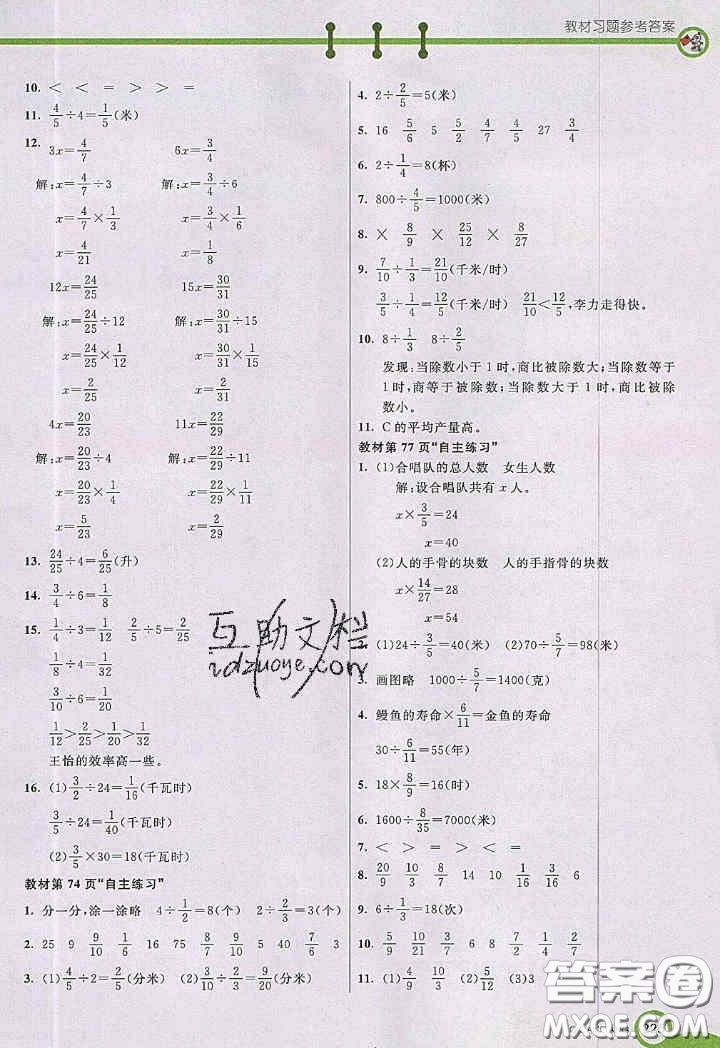 教材习题参考答案
10. < < = > > =
11. 4/5÷4=1/5(米)
12. 3x=4/7 6x=3/4
解:x=4/7÷3 解:x=3/4÷6
x=4/7×1/3 x=3/4×1/6
x=4/21 x=1/8
12x=24/25 15x=30/31
解:x=24/25÷12 解:x=30/31÷15
x=24/25×1/12 x=30/31×1/15
x=2/25 x=2/31
4x=20/23 11x=22/29
解:x=20/23÷4 解:x=22/29÷11
x=20/23×1/4 x=22/29×1/11
x=5/23 x=2/29
13. 24/25÷4=6/25(升)
14. 3/4÷6=1/8
15. 1/4÷3=1/12 2/5÷5=2/25
3/7÷6=1/14 4/5÷8=1/10
3/10÷6=1/20
1/10>2/25>1/12>1/14>1/20
王怡的效率高一些。
16. (1)3/2÷24=1/16(千瓦时)
3/5÷24=1/40(千瓦时)
(2)3/5×30=18(千瓦时)
教材第 74 页“自主练习”
1. 分一分,涂一涂略 4÷1/2=8(个) 2÷2/3=3(个)
2. 25 9 9/10 1/16 75 8/7 9/10 5 40 7/6 3
3. (1)4/5÷2=2/5(分米) (2)3/10÷2/3=9/20(分米)
4. 2÷2/5=5(米)
5. 16 5/6 5 5/2 4/5 27 3/4
6. 2÷1/4=8(杯)
7. 800÷4/5=1000(米)
8. × 8/9 × 25/12 × 8/27
9. 7/10÷1/3=21/10(千米/时)
3/5÷1/4=12/5(千米/时) 21/10<12/5,李力走得快。
10. 8÷1/3 8÷2/5
发现:当除数小于 1 时,商比被除数大;当除数等于
1 时,商等于被除数;当除数大于 1 时,商比被除
数小。
11. C的平均产量高。
教材第 77 页“自主练习”
1. (1)合唱队的总人数 女生人数
解:设合唱队共有 x 人。
x×3/5=24
x=40
(2)人的手骨的块数 人的手指骨的块数
x×14/27=28
x=54
2. (1)24÷3/5=40(米) (2)70÷5/7=98(米)
3. 画图略 1000÷5/7=1400(克)
4. 鳗鱼的寿命×6/11=金鱼的寿命
30÷6/11=55(年)
5. 18×8/9=16(米)
6. 1600÷8/35=7000(米)
7. < > = > < =
8. 20/9 10/3 16 8/9 18 4/9 13/10
9. 6÷1/3=18(次)
10. 5/9 4/10 6 8 7/2 1/2 2/7
11. (1)4/9 10/3 (2)5/12 (3)3
互助文档
idzuoye.com
答案圈
MXQE.COM